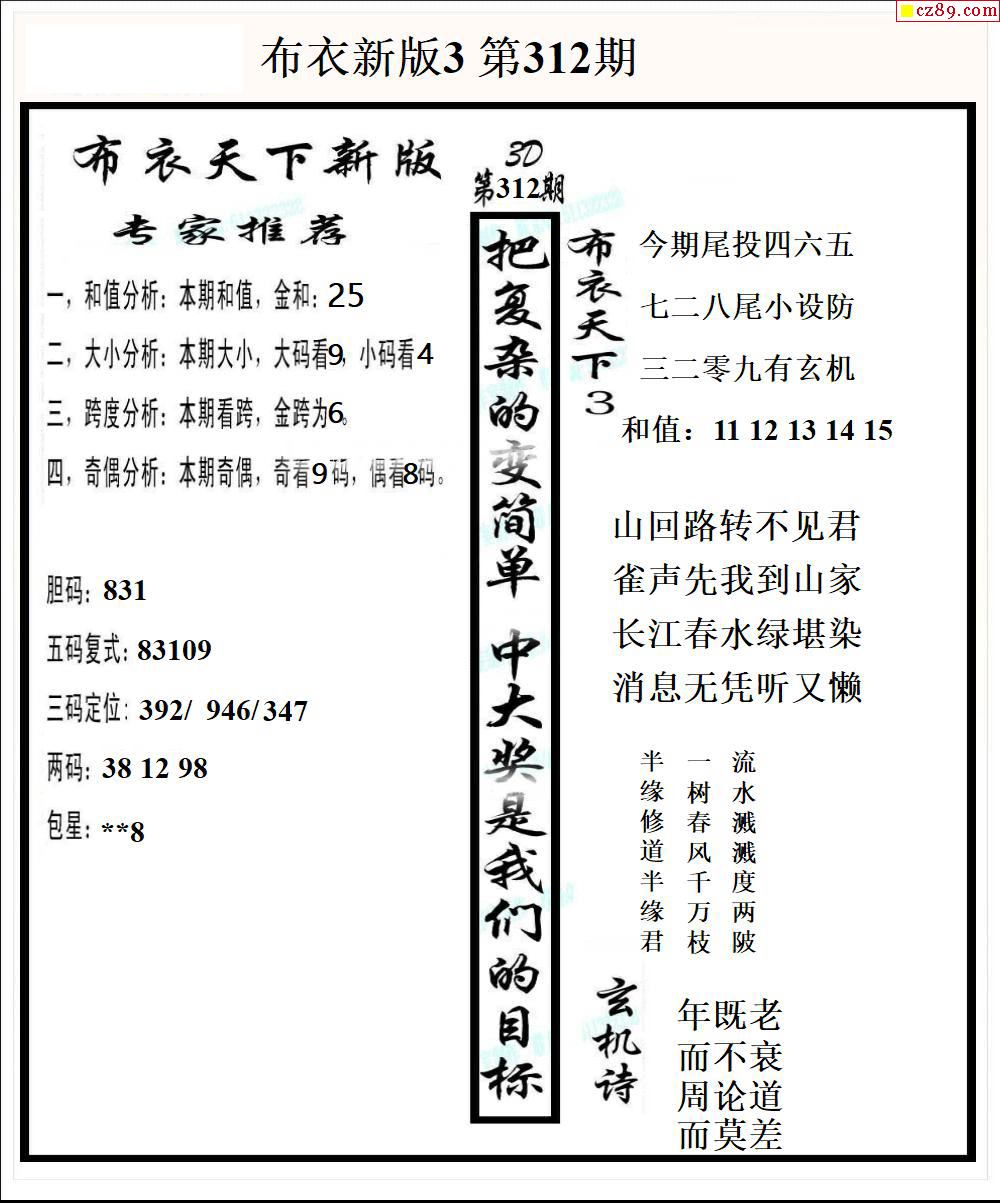 cz89.com
布衣新版3 第312期
布衣天下新版
专家推荐
一，和值分析：本期和值，金和：25
二，大小分析：本期大小，大码看9，小码看4
三，跨度分析：本期看跨，金跨为6。
四，奇偶分析：本期奇偶，奇看9码，偶看8码。
胆码：831
五码复式：83109
三码定位：392/ 946/347
两码：38 12 98
包星：**8
3D
第312期
把复杂的变简单 中大奖是我们的目标
布衣天下3
今期尾投四六五
七二八尾小设防
三二零九有玄机
和值：11 12 13 14 15
山回路转不见君
雀声先我到山家
长江春水绿堪染
消息无凭听又懒
流水溅溅度两陂
一树春风千万枝
半缘修道半缘君
玄机诗
年既老
而不衰
周论道
而莫差